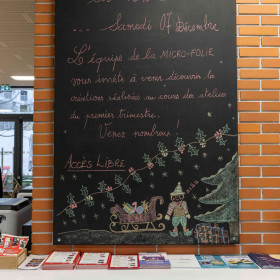 ... Samedi 07 Décembre
L'équipe de la MICRO-FOLIE
vous invite à venir découvrir les
créations réalisées au cours des ateliers
du premier trimestre.
Venez nombreux !
ACCÈS LIBRE